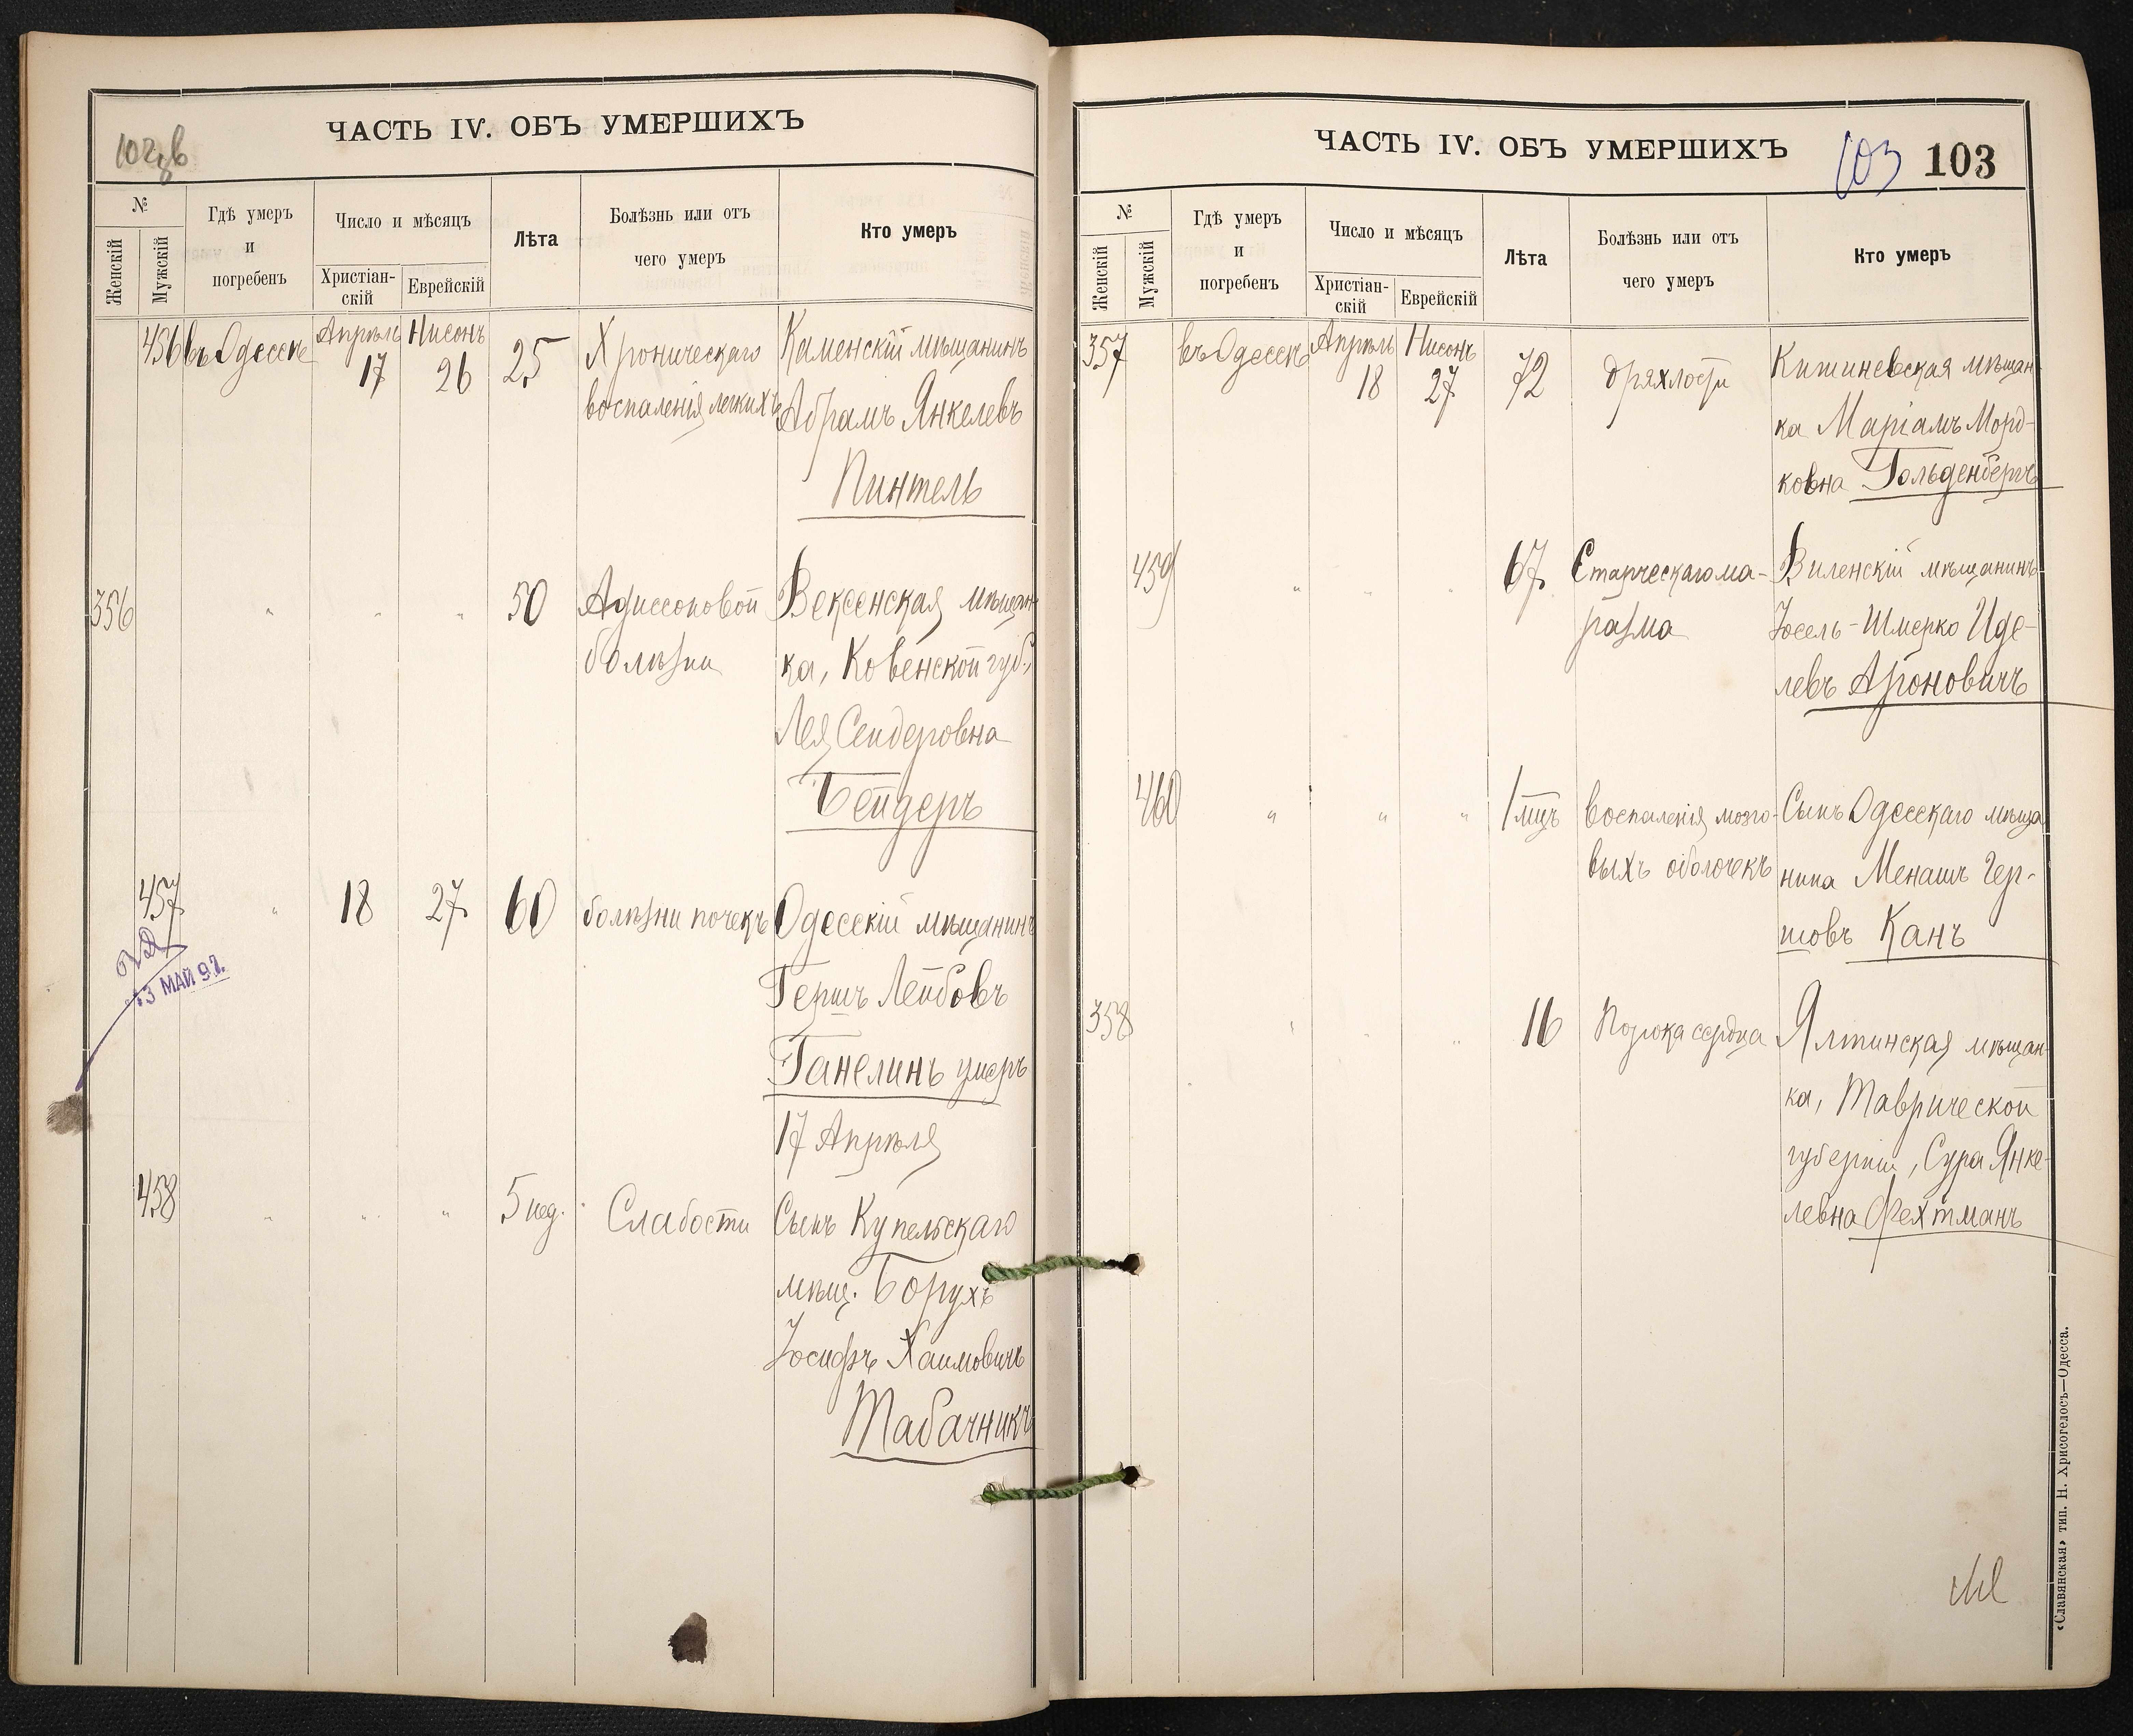 102 об
ЧАСТЬ IV. ОБЪ УМЕРШИХЪ
№
Женскій
Мужскій
Гдѣ умеръ
и
погребенъ
Число и мѣсяцъ
Христіан-
скій
Еврейскій
Лѣта
Болѣзнь или отъ
чего умеръ
Кто умеръ
456 въ Одессѣ Апрѣль 17 Нисонъ 26 25
Хроническаго
воспаленія легкихъ
Каменскій мѣщанинъ
Абрамъ Янкелевъ
Пинтель
356 " " " 50
Адиссоновой
болѣзни
Вексенская мѣщан-
ка, Ковенской губ.,
Лея Сендеровна
Бейдеръ
457 " 18 27 60
болѣзни почекъ
Одесскій мѣщанинъ
Гершъ Лейбовъ
Ганелинъ умеръ
17 Апрѣля
13 МАЙ 97.
458 " " " 5 нед.
Слабости
Сынъ Купельскаго
мѣщ. Борухъ
Іосифъ Хаимовичъ
Табачникъ
ЧАСТЬ IV. ОБЪ УМЕРШИХЪ
103 103
№
Женскій
Мужскій
Гдѣ умеръ
и
погребенъ
Число и мѣсяцъ
Христіан-
скій
Еврейскій
Лѣта
Болѣзнь или отъ
чего умеръ
Кто умеръ
357 въ Одессѣ Апрѣль 18 Нисонъ 27 72
дряхлости
Кишиневская мѣщан-
ка Маріамъ Морд-
ковна Гольденбергъ
459 " " " 67
Старческаго ма-
разма
Виленскій мѣщанинъ
Іосель-Шмерко Иде-
левъ Ароновичъ
460 " " " 1 мцъ
воспаленія мозго-
выхъ оболочекъ
Сынъ Одесскаго мѣща
нина Менашъ Гер-
шовъ Канъ
358 " " " 16
Порока сердца
Ялтинская мѣщан-
ка, Таврической
губерніи, Сура Янке-
левна Фехтманъ
«Славянская» тип. Н. Хрисогелосъ—Одесса.